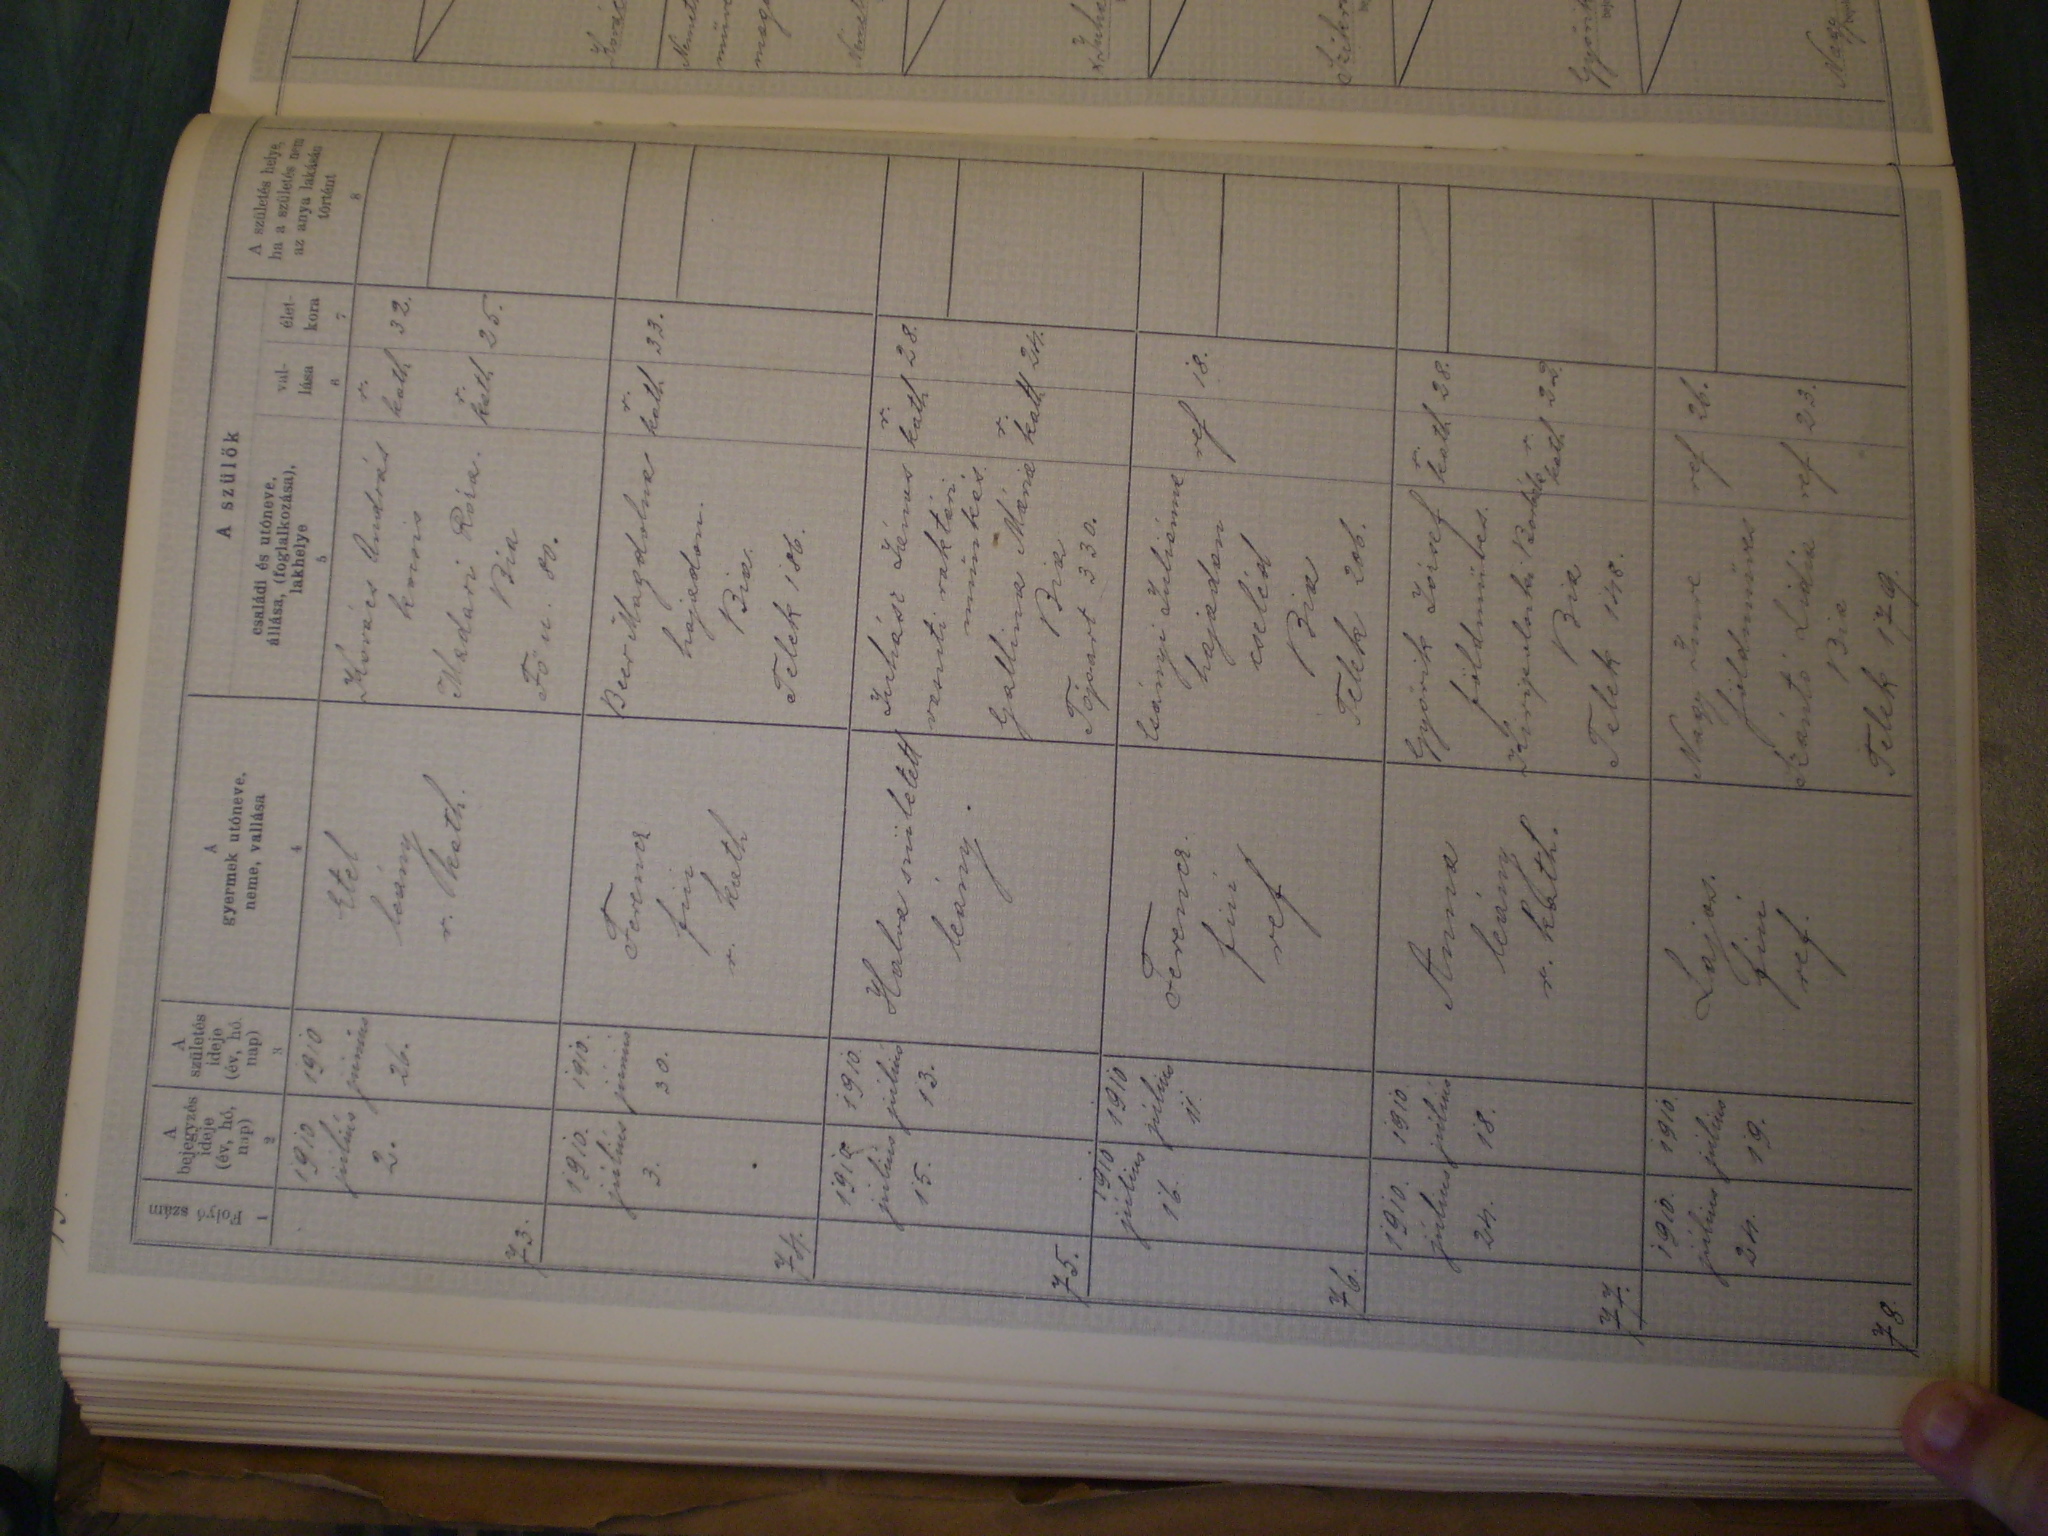 A szülők
Folyó szám
A bejegyzés ideje (év, hó, nap)
A születés ideje (év, hó nap)
A gyermek utóneve, neme, vallása
családi és utóneve, állása, (foglalkozása), lakhelye
val-lása
élet-kora
A születés helye, ha a születés nem az anya lakásán történt
1 2 3 4 5 6 7 8
73.
1910. július 2.
1910 június 26.
Etel
leány
r. kath.
Kovács András
kocsis
r. kath 32.
Madari Rózia.
r. kath 25.
Bia
Fő u. 80.
74.
1910. július 3.
1910. június 30.
Ferencz
fiu
r. kath
Beer Magdolna
r. kath 33.
hajadon.
Bia
Telek 186.
75.
1910 július 15.
1910. július 13.
Halva született
leány.
Juhász János
r. kath 28.
vasuti raktári
munkás
Gallina Mária
r. kath 24.
Bia
Tópart 330.
76.
1910 július 16.
1910 július 11.
Ferencz.
fiu
ref
Leányi Juliánna
ref 18.
hajadon
cseléd
Bia
Telek 206.
77.
1910. július 24.
1910. július 18.
Anna
leány
r. kath.
Györik József
r. kath 28.
földmüves.
r. kath 22.
Bia
Telek 148.
78.
1910. július 24.
1910. július 19.
Lajos.
fiu
ref.
Nagy Imre
ref 26.
földmüves
Szántó Lidia
ref 23.
Bia
Telek 179.